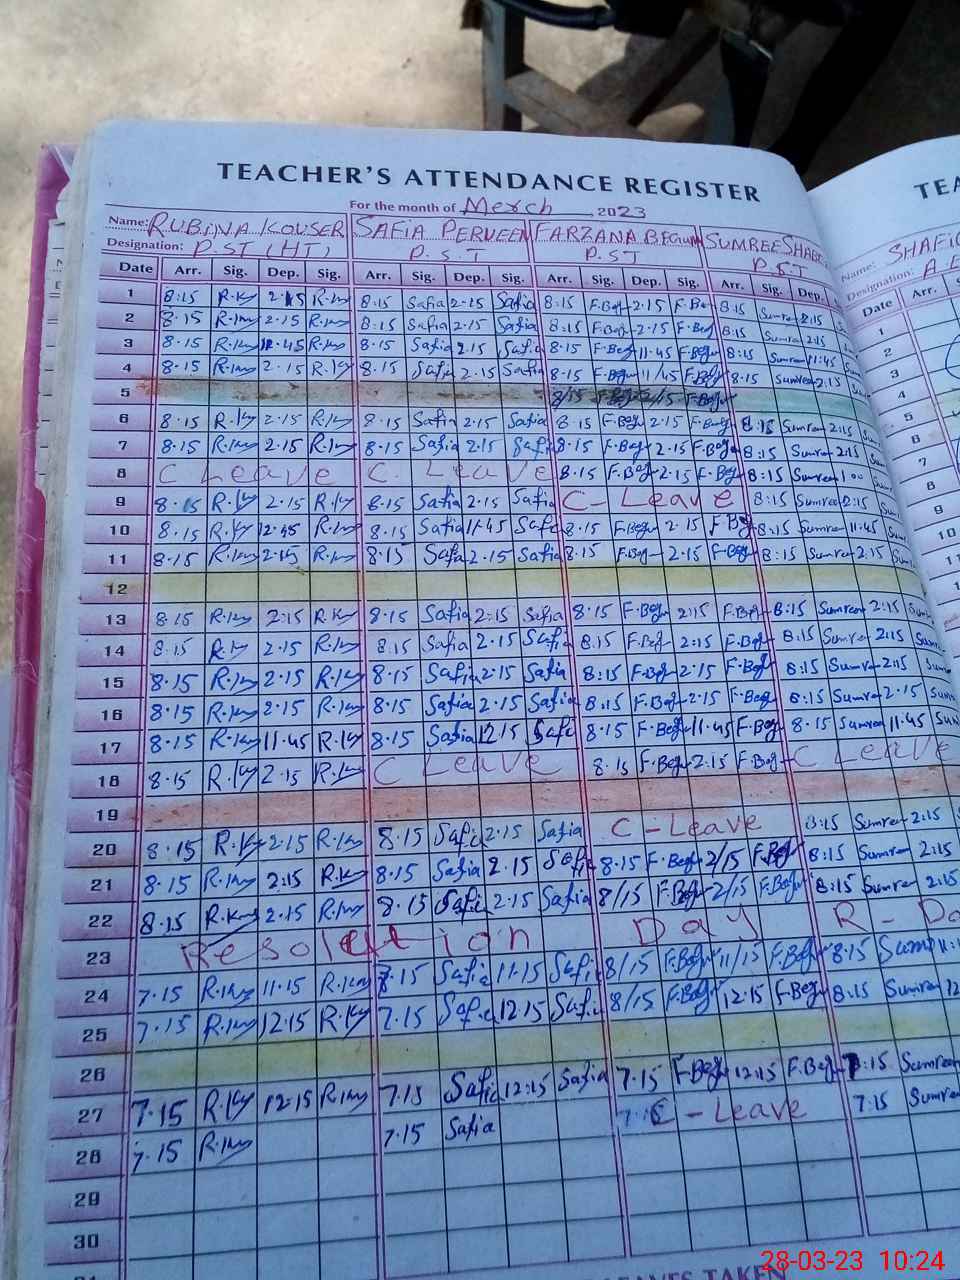 TEACHER'S ATTENDANCE REGISTER
For the month of Merch 2023
Name: RUBINA KOUSER SAFIA PERVEEN FARZANA BEGUM SUMREE SHAB
Designation: P.ST (HT) P.S.T P.ST P.S.T
Date Arr. Sig. Dep. Sig. Arr. Sig. Dep. Sig. Arr. Sig. Dep. Sig. Arr. Sig. Dep.
1 8:15 R.Km 2.15 R.Km 8:15 Safia 2.15 Safia 8:15 F.Beg 2.15 F.Beg 8:15 Sumre 2:15
2 8.15 R.Km 2.15 R.Km 8:15 Safia 2.15 Safia 8:15 F.Beg 2.15 F.Beg 8:15 Sumre 2:15
3 8.15 R.Km 12.45 R.Km 8.15 Safia 2.15 Safi 8.15 F.Beg 11.45 F.Beg 8:15 Sumre 11:45
4 8.15 R.Km 2.15 R.Ky 8.15 Safia 2.15 Safia 8.15 F.Beg 11/45 F.Beg 8.15 Sumre 2:15
5 8/15 2/15 F.Beg
6 8.15 R.Ky 2.15 R.Km 8.15 Safia 2.15 Safia 8.15 F.Beg 2.15 F.Beg 8:15 Sumre 2:15
7 8.15 R.Km 2.15 R.Km 8.15 Safia 2.15 Safi 8.15 F.Beg 2.15 F.Beg 8:15 Sumre 2:15
8 C Leave C. Leave 8.15 F.Beg 2.15 F.Beg 8:15 Sumre 1 00
9 8.15 R.Ky 2.15 R.Ky 8.15 Safia 2.15 Safia C - Leave 8:15 Sumre 2:15
10 8.15 R.Ky 12.45 R.Km 8.15 Safia 11.45 Safi 8.15 F.Beg 2.15 F.Beg 8:15 Sumre 11.45
11 8.15 R.Km 2.15 R.Km 8.15 Safia 2.15 Safia 8.15 F.Beg 2.15 F.Beg 8:15 Sumre 2.15
12
13 8.15 R.Km 2:15 R.Ky 8.15 Safia 2:15 Safia 8.15 F.Beg 2:15 F.Beg 8:15 Sumre 2:15
14 8.15 R.Ky 2.15 R.Km 8.15 Safia 2.15 Safi 8.15 F.Beg 2.15 F.Beg 8:15 Sumre 2:15
15 8.15 R.Km 2.15 R.Km 8.15 Safi 2.15 Safia 8:15 F.Beg 2.15 F.Beg 8:15 Sumre 2:15
16 8.15 R.Km 2.15 R.Km 8.15 Safia 2.15 Safia 8.15 F.Beg 2.15 F.Beg 8:15 Sumre 2.15
17 8.15 R.Km 11.45 R.Ky 8.15 Safia 12.15 Safi 8.15 F.Beg 11.45 F.Beg 8.15 Sumre 11.45
18 8.15 R.Ky 2.15 R.Km C Leave 8.15 F.Beg 2.15 F.Beg C Leave
19
20 8.15 R.Ky 2.15 R.Km 8.15 Safi 2.15 Safia C - Leave 8:15 Sumre 2:15
21 8.15 R.Km 2:15 R.Km 8.15 Safia 2.15 Safi 8.15 F.Beg 2/15 F.Beg 8:15 Sumre 2:15
22 8.15 R.Km 2.15 R.Km 8.15 Safi 2.15 Safia 8/15 F.Beg 2/15 F.Beg 8:15 Sumre 2.15
23 Resolution Day R - Da
24 7.15 R.Km 11.15 R.Km 7.15 Safia 11.15 Safi 8/15 F.Beg 11/15 F.Beg 8.15 Sum
25 7.15 R.Km 12.15 R.Ky 7.15 Safia 12.15 Safi 8/15 F.Beg 12.15 F.Beg 8:15 Sumre 12
26
27 7.15 R.Ky 12.15 R.Km 7.15 Safia 12:15 Safia 7.15 F.Beg 12:15 F.Beg 7:15 Sumre
28 7.15 R.Km 7.15 Safia C - Leave 7:15 Sumre
29
30
TEA
Name: SHAFI
Designation: A
Date Arr.
1
2
3
4
5
6
7
8
9
10
11
LEAVES TAKEN
28-03-23 10:24